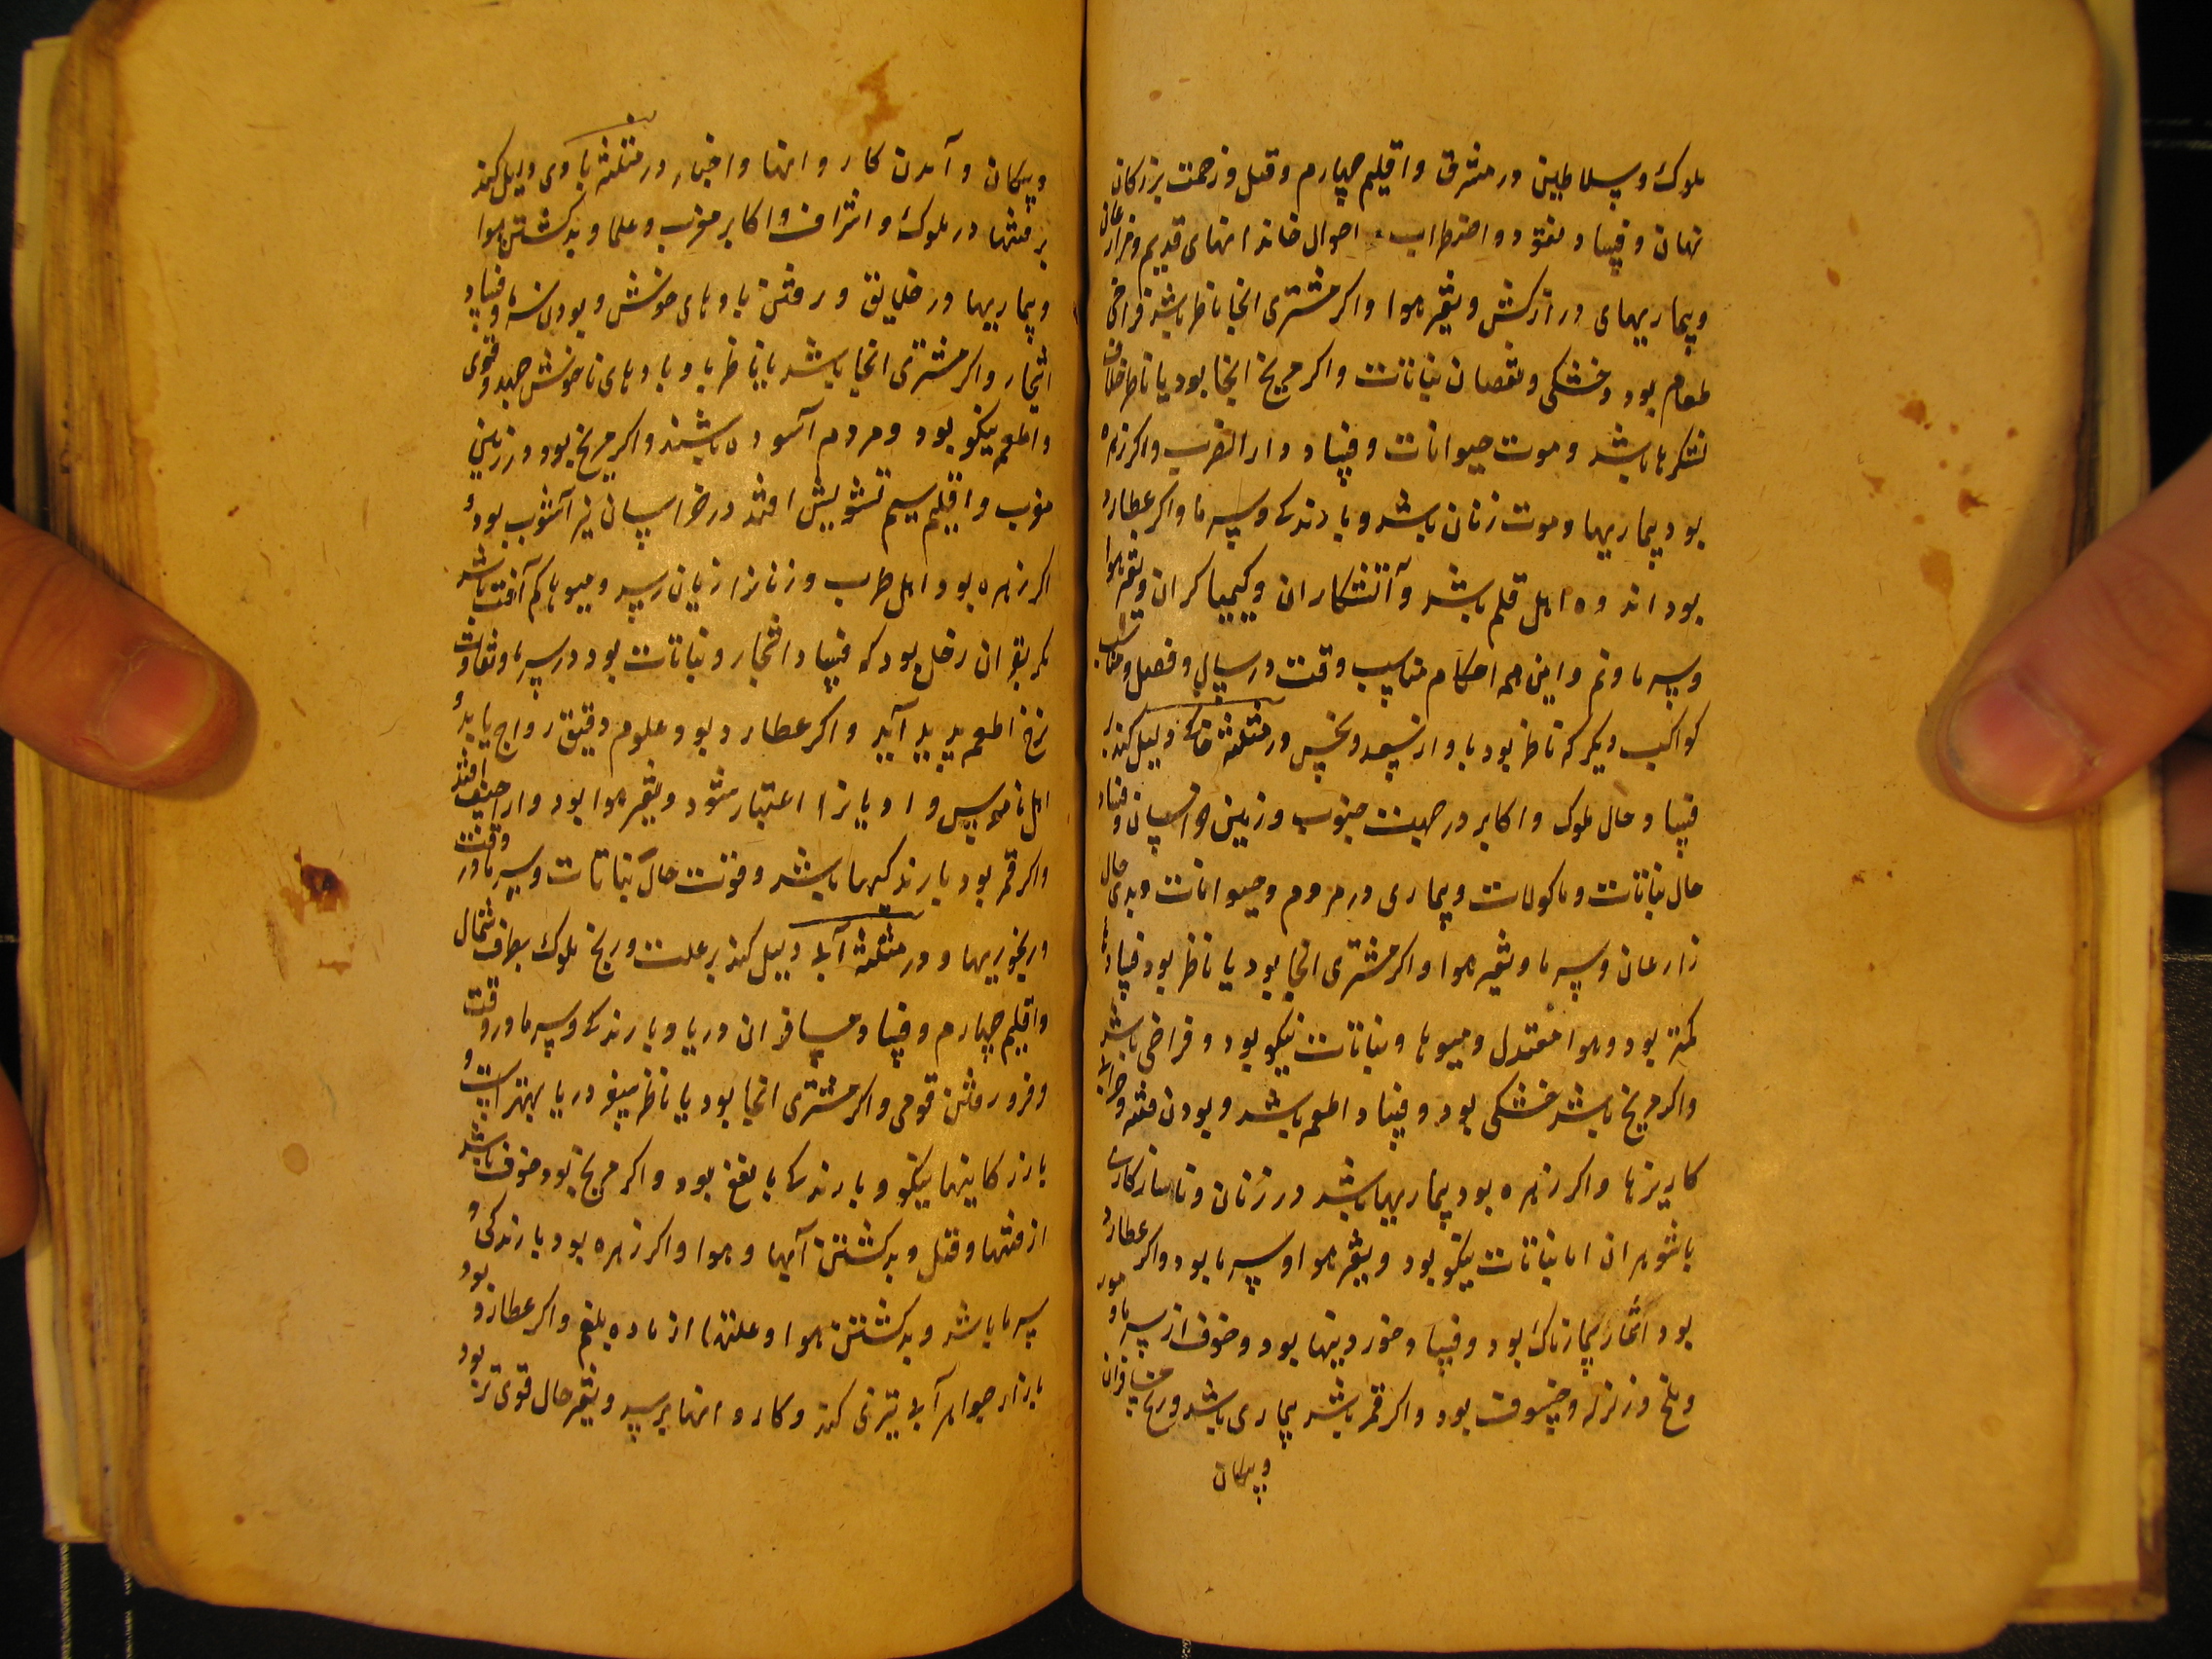 ملوک و سلاطین در مشرق و اقلیم چهارم و قتل و زحمت بزرکان
نهان و فساد نقود و اضطراب احوال خاندانهای قدیم و مزارعان
و بیماریهای درازکش و تغیر هوا و اکر مشتری انجا ناظر باشد فراخی
طعام بود و خشکی و نقصان نباتات و اکر مریخ انجا بود یا ناظر خلاف
لشکرها باشد و موت حیوانات و فساد دار الضرب و اکر زهره
بود بیماریها و موت زنان باشد و بارندکی و سرما و اکر عطارد
بود اندوه اهل قلم باشد و آتشکاران و کیمیاکران و تغیر هوا
و سرما و نم و این همه احکام مناسب وقت در سال و فصل و مناسب
کواکب دیکر که ناظر بود باو از سعد و نحس و در مثلثه خاکی دلیل کند بر
فساد حال ملوک و اکابر در جهت جنوب و زمین خراسان و فساد
حال نباتات و ماکولات و بیماری در مردم و حیوانات و بدی حال
زارعان و سرما و تغیر هوا و اکر مشتری انجا بود یا ناظر بود فساد
کمتر بود و هوا معتدل و میوها و نباتات نیکو بود و فراخی باشد
و اکر مریخ باشد خشکی بود و فساد اطعمه باشد و بودن فتنه و خرابی
کاریزها و اکر زهره بود بیماریها باشد در زنان و ناسازکاری
با شوهران اما نباتات نیکو بود و تغیر هوا و سرما بود و اکر عطارد
بود اثمار بیمارناک بود و فساد خوردینها بود و خوف از سرما و مور
و ملخ و زلزله و خسوف بود و اکر قمر باشد بیماری باشد و رنج مسافران
و پیکان
و پیکان و آمدن کاروانها و اخبار و در مثلثه بادی دلیل کند
بر فتنها در ملوک و اشراف و اکابر مغرب و علما و بد کشتن هوا
و بیماریها در خلایق و رفتن بادهای خوش و بودن سرما و فساد
اثمار و اکر مشتری انجا باشد یا ناظر باو بادهای ناخوش جهد و قوی
و اطعمه نیکو بود و مردم آسوده باشند و اکر مریخ بود در زمین
مغرب و اقلیم سیم تشویش افتد در خراسان نیز آشوب بود و
اکر زهره بود اهل طرب و زنانرا زیان رسد و میوها کم آفت باشد
مکر بقران زحل بود که فساد اشجار و نباتات بود در سرما و تفاوت
نرخ اطعمه پدید آید و اکر عطارد بود علوم دقیق رواج یابد و
اهل ناموس و ادیانرا اعتبار شود و تغیر هوا بود و اراجیف افتد
و اکر قمر بود بارندکیها باشد و قوت حال نباتات و سرما در وقت
و رنجوریها و در مثلثه آبی دلیل کند بر علت و رنج ملوک بطرف شمال
و اقلیم چهارم و فساد مسافران دریا و بارندکی و سرما در وقت
و فرو رفتن قومی و اکر مشتری انجا بود یا ناظر سفر دریا بهتر است و
بازرکانیها نیکو و بارندکی با نفع بود و اکر مریخ بود خوف باشد
از فتنها و قتل و بد کشتن آبها و هوا و اکر زهره بود بارندکی و
سرما باشد و بد کشتن هوا و علتها از ماده بلغم و اکر عطارد بود
بازار جواهر آبی تیزی کند و کاروانها برسد و تغیر حال قوی تر بود